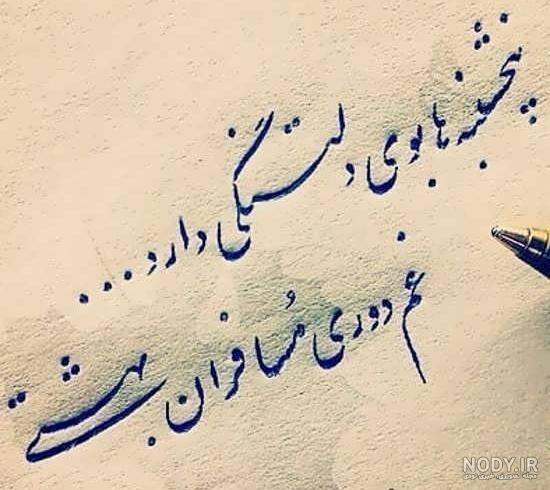 پنجشنبه ها بوی دلتنگی دارد...
غم دوری مُسافران بهشتی
NODY.IR